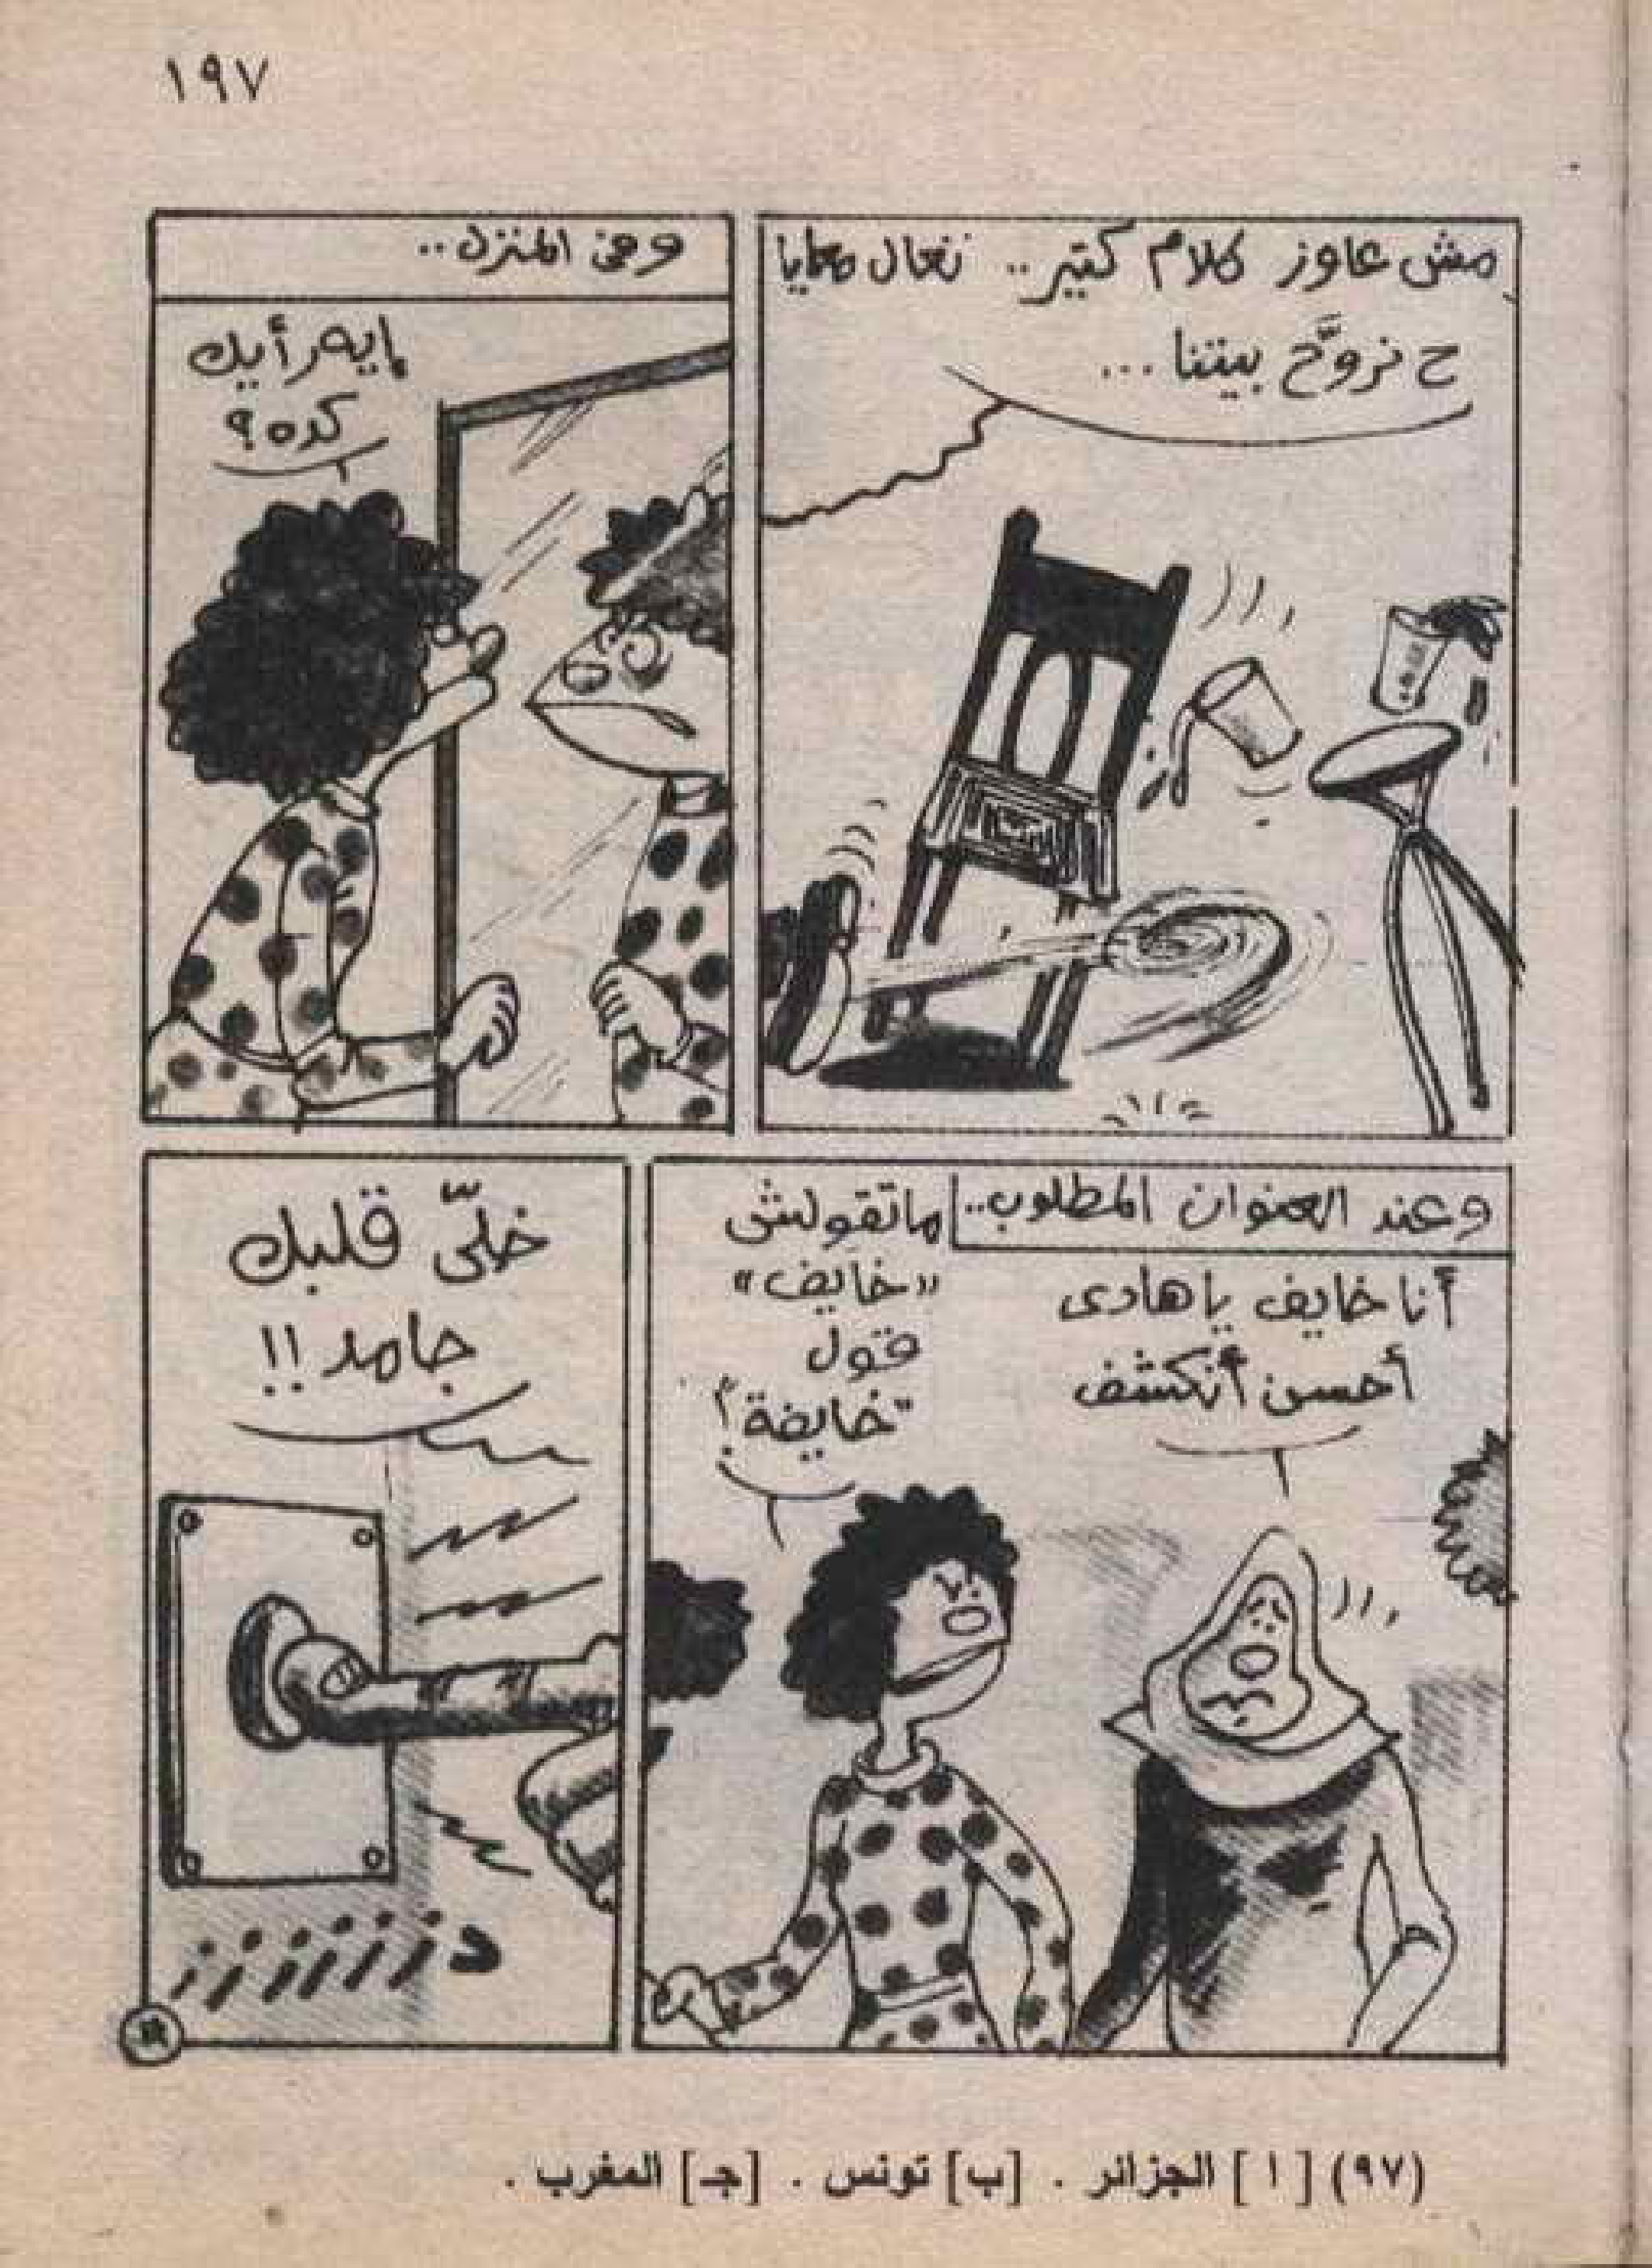 ١٩٧
مش عاوز كلام كتير.. تعال معايا
ح نروَّح بيتنا...
وفى المنزل..
إيه رأيك
كده؟
وعند العنوان المطلوب..
أنا خايف ياهادى
أحسن أنكشف
ماتقولش
«خايف»
قول
"خايفة"!
خلّى قلبك
جامد!!
دزززززز
(٩٧) [ ا ] الجزائر . [ب] تونس . [جـ] المغرب .